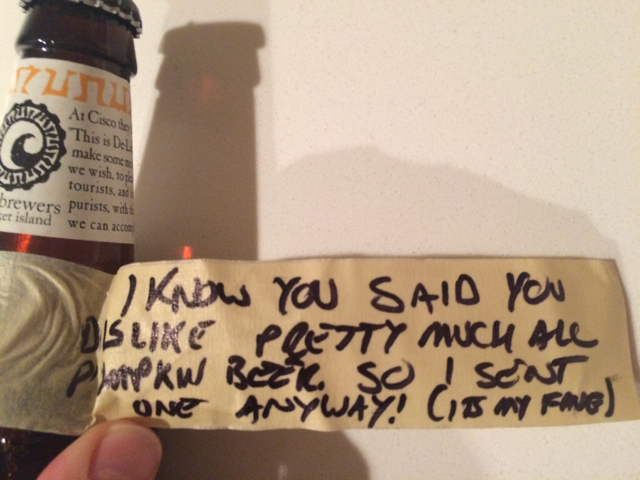 At Cisco they
"This is De
make some
we wish, to
tourists, and
purists, with
we can accom
brewers
ket island
I KNOW YOU SAID YOU
DISLIKE PRETTY MUCH ALL
PUMPKIN BEER. SO I SENT
ONE ANYWAY! (ITS MY FAVE)